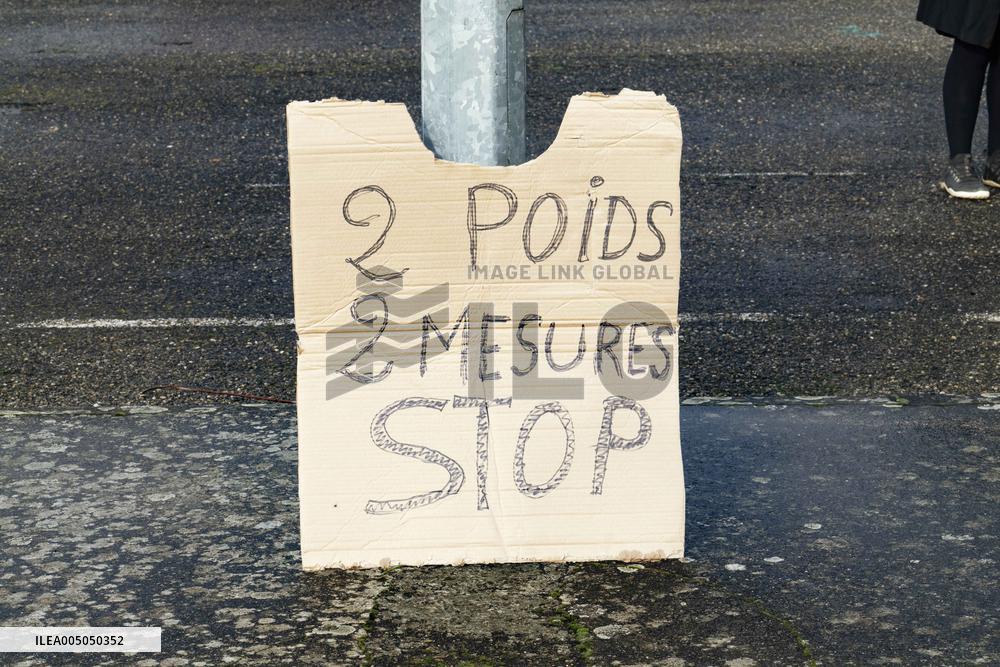 2 POiDS
IMAGE LINK GLOBAL
2 MESURES
ILG
STOP
ILEA005050352